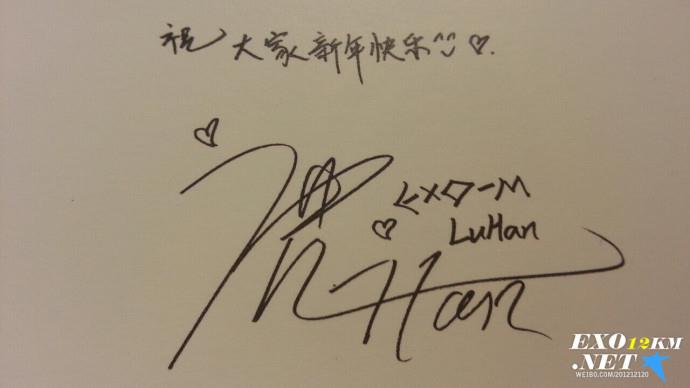 祝大家新年快乐^^♡.
EXO-M
LuHan
Han
EXO12KM
.NET
WEIBO.COM/201212120